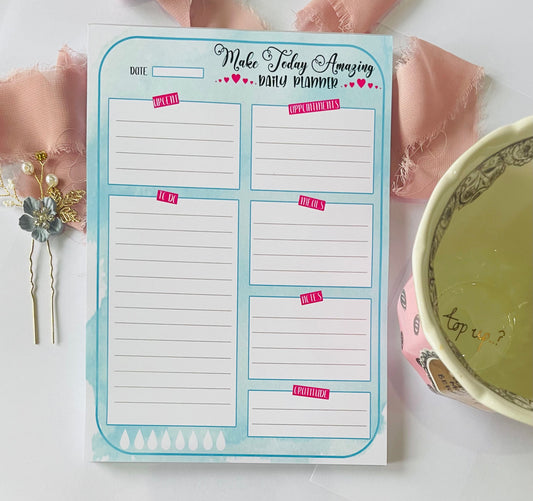 Make Today Amazing
DATE
DAILY PLANNER
URGENT
APPOINTMENTS
TO DO
MEALS
NOTES
GRATITUDE
top up...?